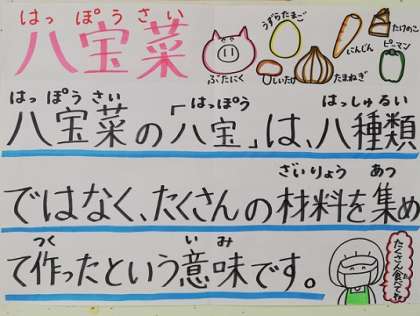 はっぽうさい
八宝菜
うずらたまご
にんじん
たけのこ
ぶたにく
しいたけ
たまねぎ
ピーマン
はっぽうさい はっぽう はっしゅるい
八宝菜の「八宝」は、八種類
ざいりょう あつ
ではなく、たくさんの材料を集め
つく いみ
て作ったという意味です。
たくさん食べてね